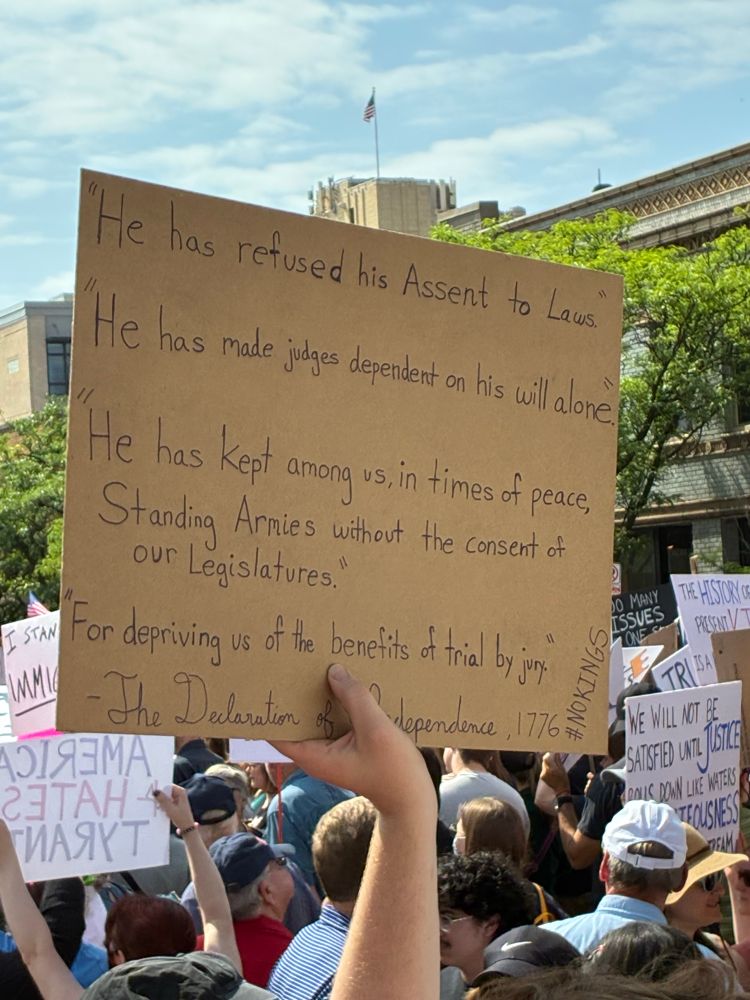 "He has refused his Assent to Laws."
"He has made judges dependent on his will alone."
"He has kept among us, in times of peace,
Standing Armies without the consent of
our Legislatures."
"For depriving us of the benefits of trial by jury."
- The Declaration of Independence, 1776
#NOKINGS
I STAN
IMMI
AMERICA
HATES
TYRANT
MANY
ISSUES
ONE
THE HISTORY OF
PRESENT
IS A
WE WILL NOT BE
SATISFIED UNTIL JUSTICE
ROLLS DOWN LIKE WATERS
TEOUSNESS
REAM